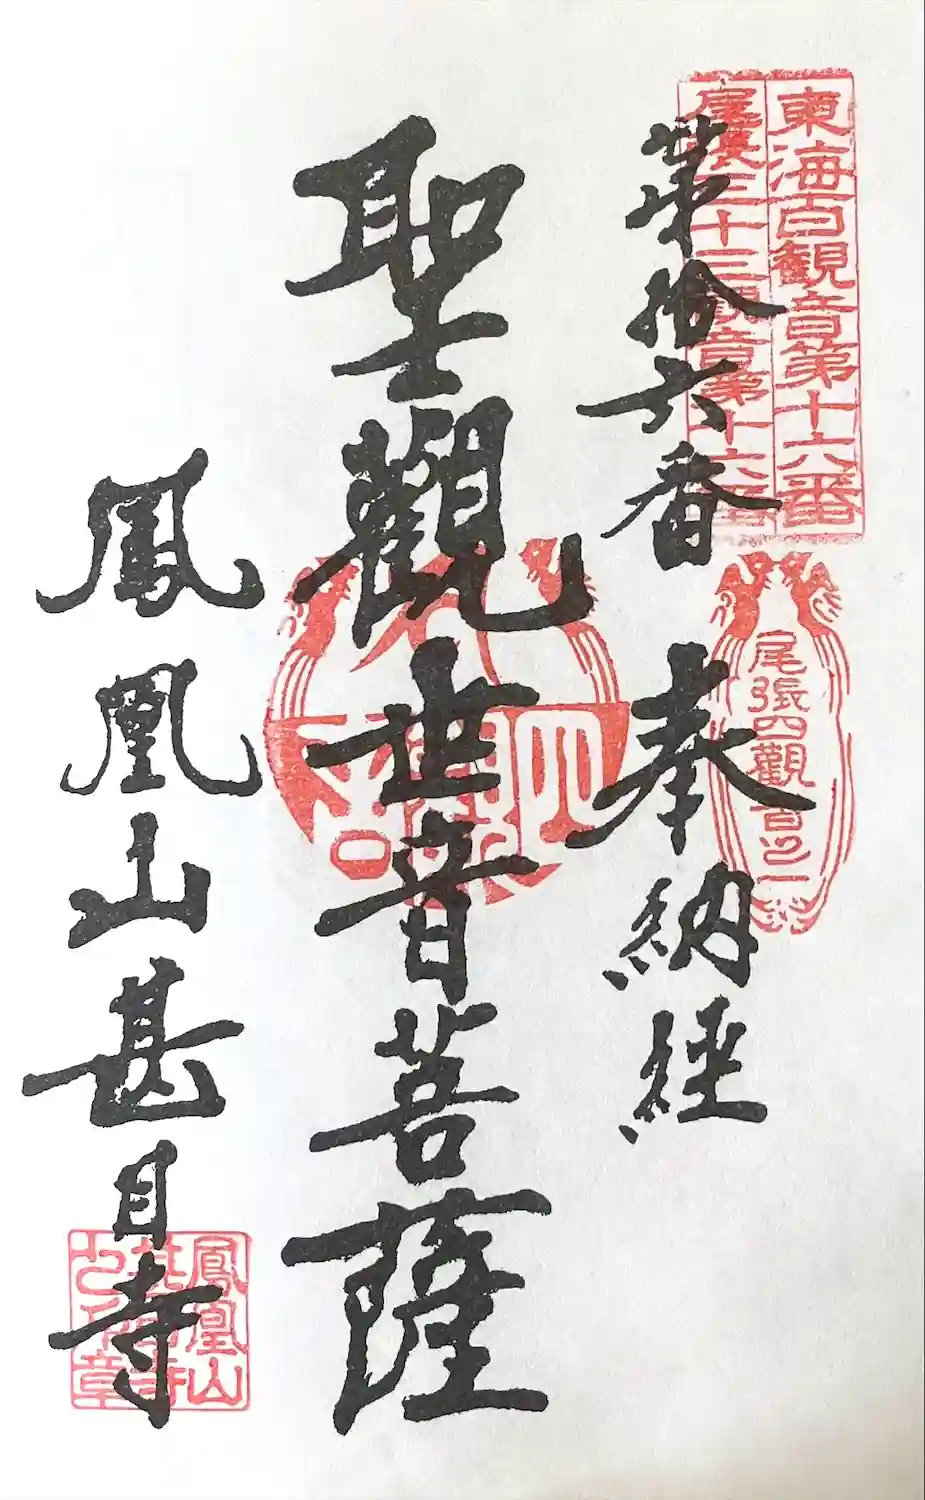 東海百観音第十六番
尾張三十三観音第十六番
第拾六番 奉納経
尾張四觀音之一
聖觀世音菩薩
鳳凰山甚目寺
鳳凰山
甚目寺
之印章